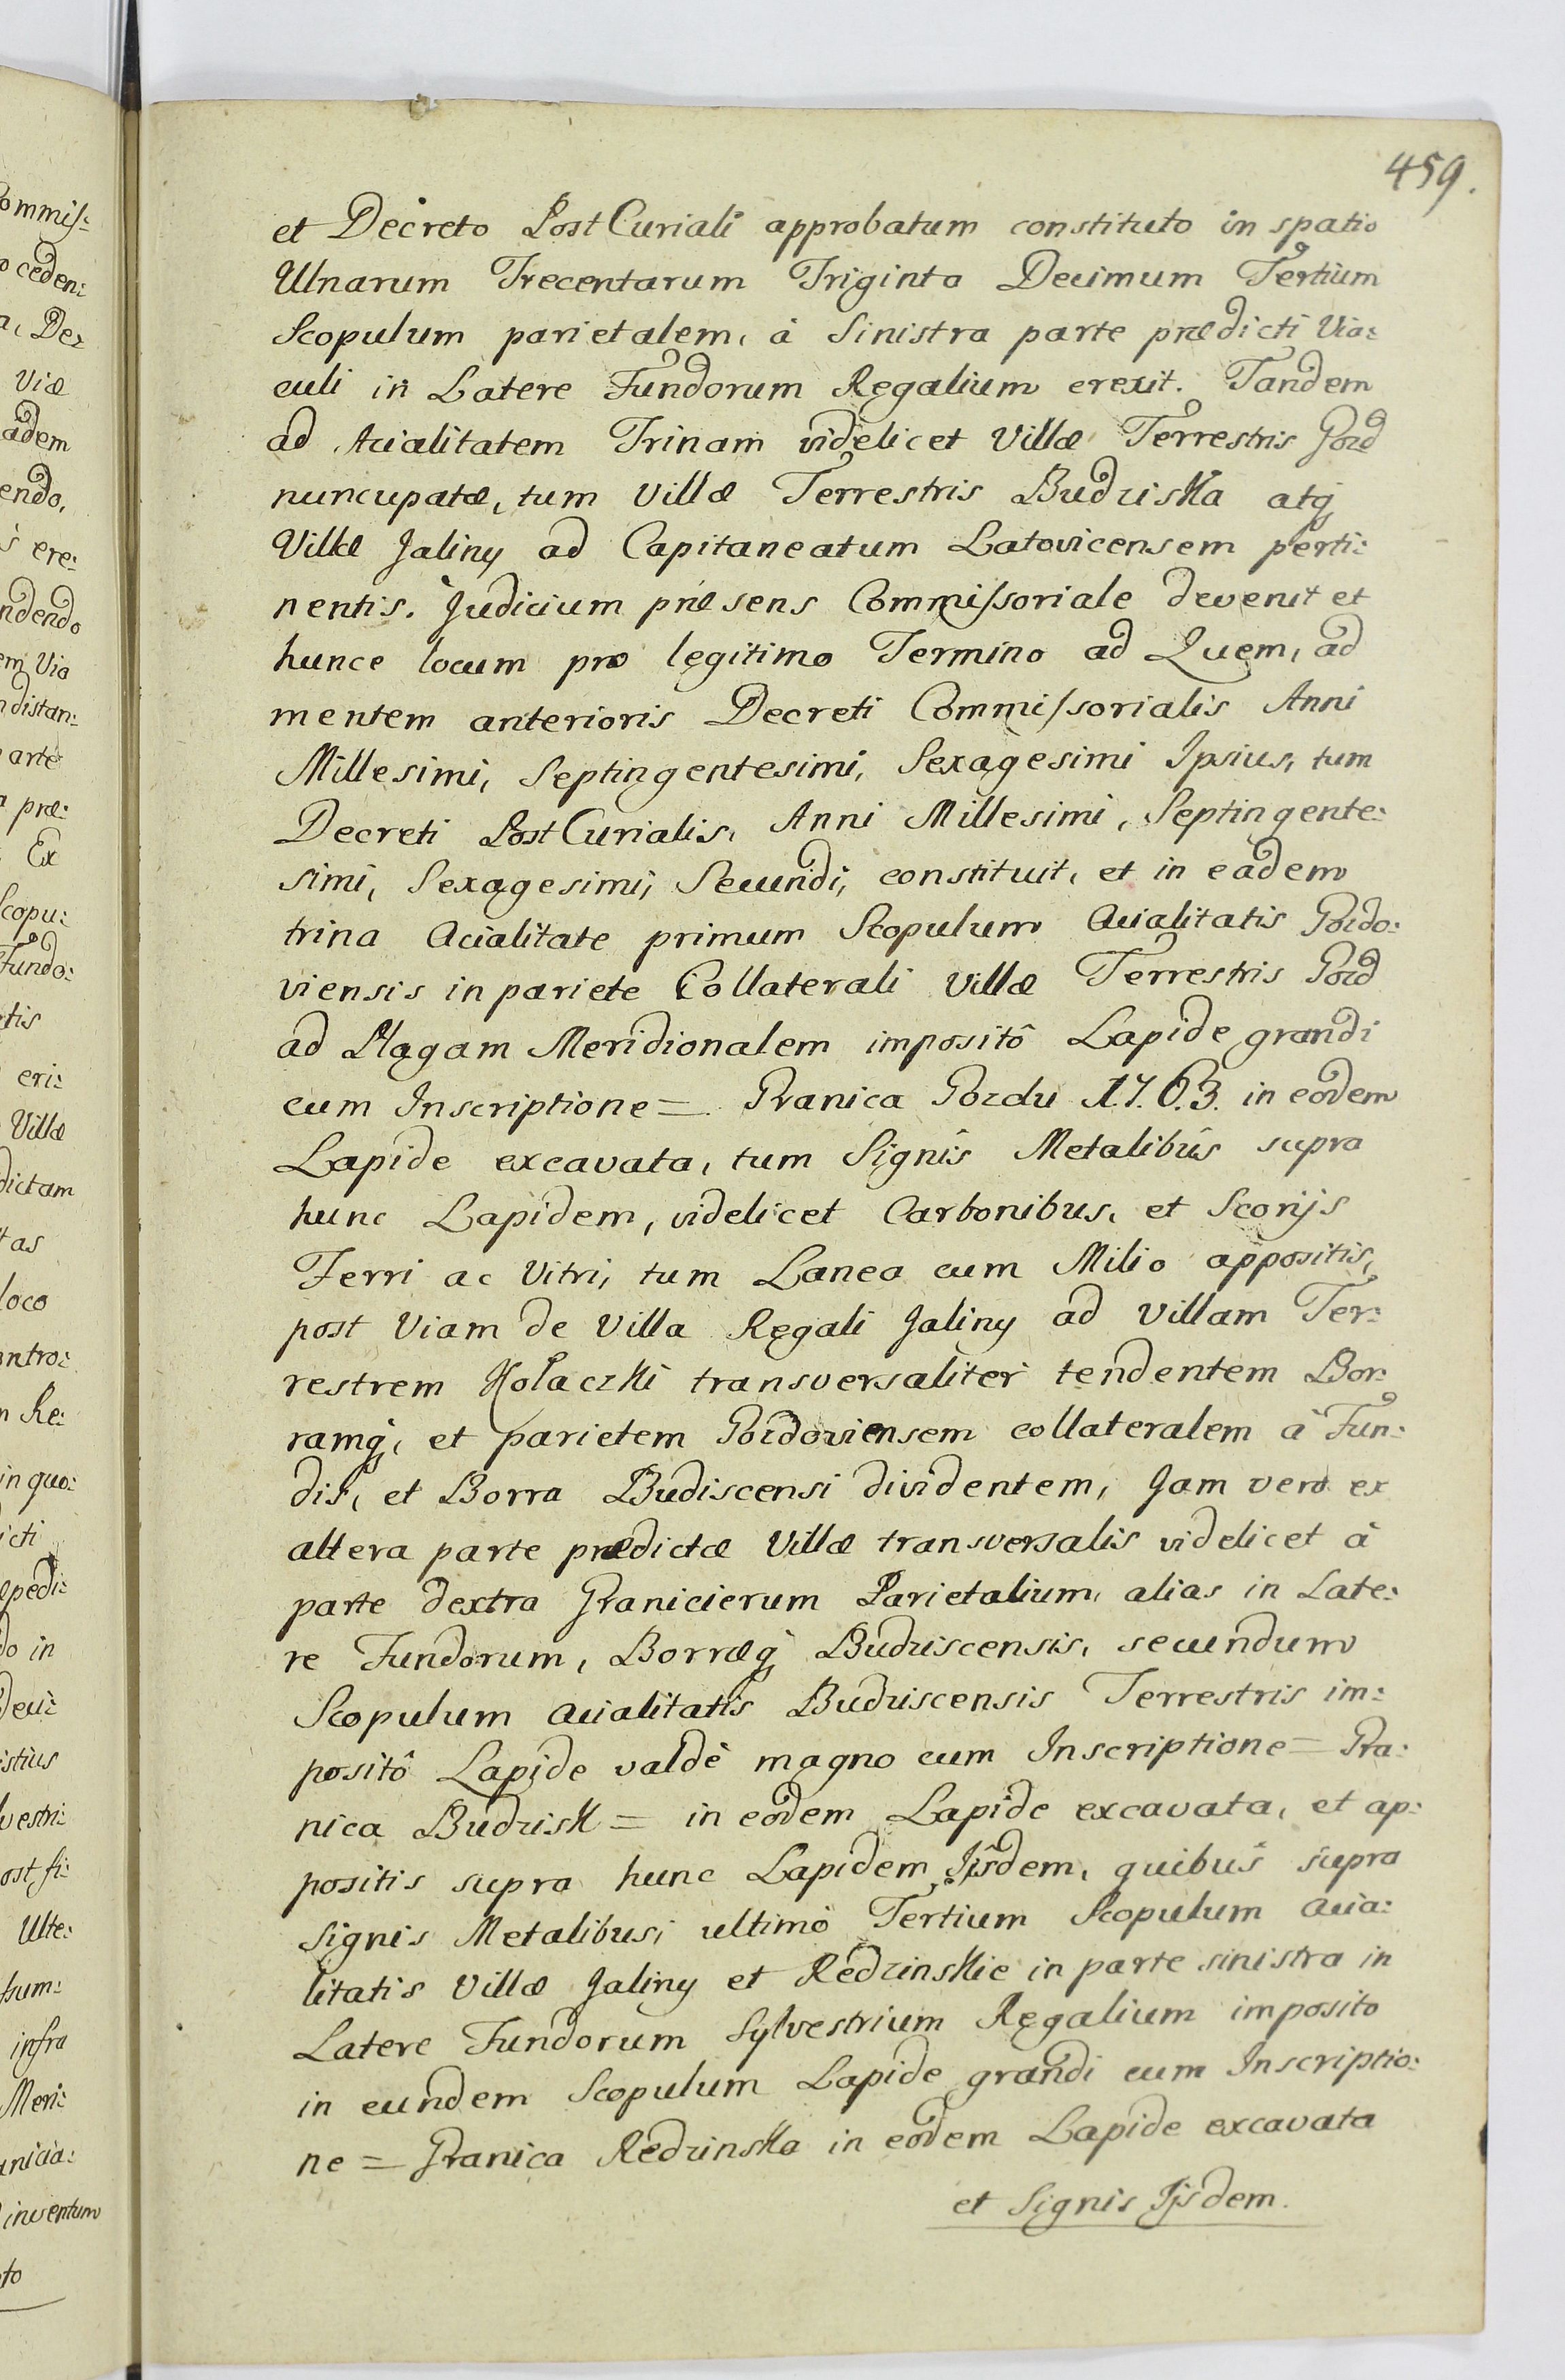 459.
et Decreto PostCuriali approbatum constituto in spatio
Ulnarum Trecentarum Triginta Decimum Tertium
Scopulum parietalem, à Sinistra parte prædicti Via:
culi in Latere Fundorum Regalium erexit. Tandem
ad Acialitatem Trinam videlicet Villæ Terrestris Gozd
nuncupatæ, tum Villæ Terrestris Budziska atq
Villæ Jaliny ad Capitaneatum Latovicensem perti:
nentis. Judicium præsens Commissoriale devenit et
hunce locum pro legitimo Termino ad Quem, ad
mentem anterioris Decreti Commissorialis Anni
Millesimi, Septingentesimi, Sexagesimi Ipsius, tum
Decreti PostCurialis, Anni Millesimi, Septingente:
simi, Sexagesimi, Secundi, constituit, et in eadem
trina Acialitate primum Scopulum Acialitatis Gozdo:
viensis in pariete Collaterali Villæ Terrestris Gozd
ad Plagam Meridionalem impositô Lapide grandi
cum Inscriptione = Granica Gozdu 1.7.6.3. in eodem
Lapide excavata, tum Signis Metalibus supra
hunc Lapidem, videlicet Carbonibus, et Scorijs
Ferri ac Vitri, tum Lanea cum Milio appositis,
post Viam de Villa Regali Jaliny ad Villam Ter:
restrem Kołaczki transversaliter tendentem Bor:
ramq, et parietem Gozdoviensem collateralem à Fun:
dis, et Borra Budiscensi dividentem, Jam vero ex
altera parte prædictæ Villæ transversalis videlicet à
parte dextra Granicierum Parietalium, alias in Late:
re Fundorum, Borræq Budziscensis, secundum
Scopulum acialitatis Budziscensis Terrestris im:
positô Lapide valdè magno cum Inscriptione = Gra:
nica Budzisk = in eodem Lapide excavata, et ap:
positis supra hunc Lapidem Ijsdem, quibus supra
Signis Metalibus, ultimò Tertium Scopulum acia:
litatis Villæ Jaliny et Redzinskie in parte sinistra in
Latere Fundorum Sylvestrium Regalium imposito
in eundem Scopulum Lapide grandi cum Inscriptio:
ne = Granica Redzinska in eodem Lapide excavata
et Signis Ijsdem.